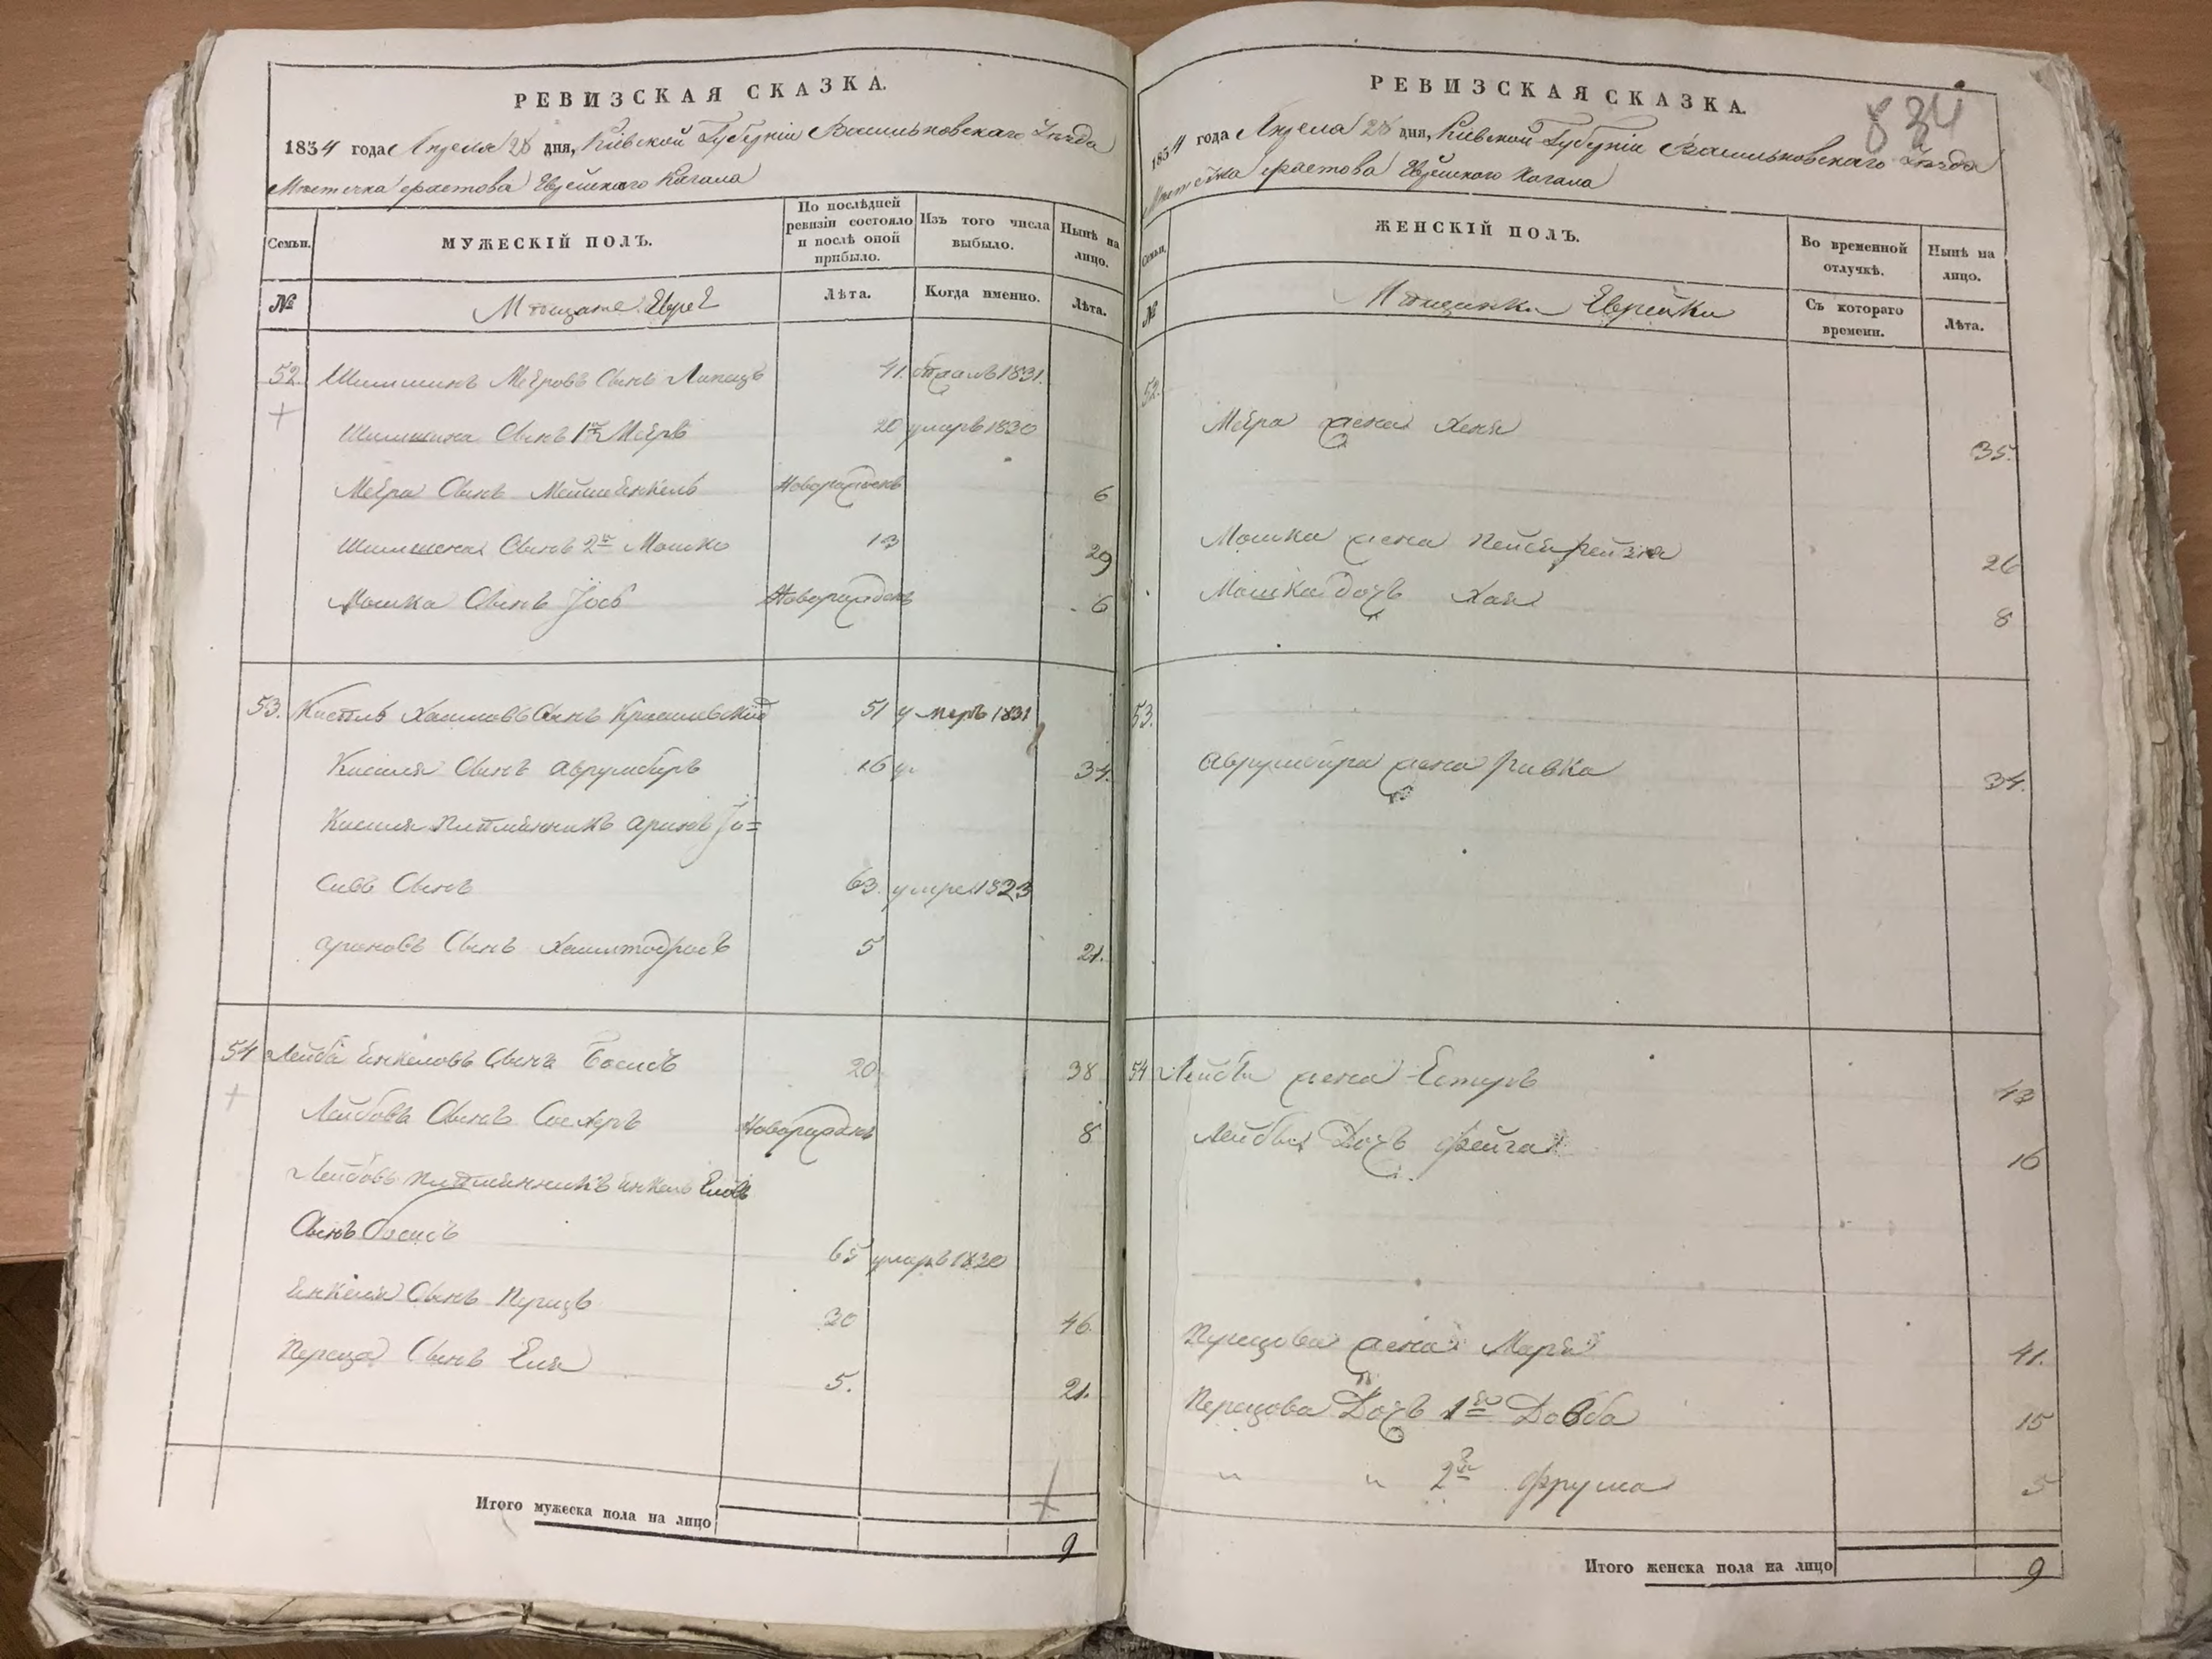 РЕВИЗСКАЯ СКАЗКА.
1834 года Апреля 28 дня, Кіевской Губерніи Васильковскаго Уезда
Местечка Фастова Еврейскаго Кагала
Семьи.
МУЖЕСКІЙ ПОЛЪ.
По послѣдней ревизіи состояло и послѣ оной прибыло.
Изъ того числа выбыло.
Нынѣ на лицо.
№
Мещане Евреи
Лѣта.
Когда именно.
Лѣта.
52. Шимшинъ Меировъ Сынъ 41. 1831.
Шимшина Сынъ 1й Меиръ 20 умеръ 1830
Меира Сынъ Новорожденъ 6
Шимшона Сынъ 2й Мошко 13 29
Мошка Сынъ Іосъ Новорожденъ 6
53. Кисель Хаимовъ Сынъ 51 умеръ 1831
Киселя Сынъ Аврумберъ 16 34.
Киселя племянникъ Аронъ Іо=
сивъ Сынъ 63. умре 1823
Ароновъ Сынъ 5 21.
54 Лейба Енкеловъ Сынъ Босисъ 20 38
Лейбовъ Сынъ Новорожденъ 8
Лейбовъ племянникъ Енкель
Сынъ Босисъ 65 умеръ 1830
Енкеля Сынъ Перецъ 30 46.
Переца Сынъ Еля 5. 21.
Итого мужеска пола на лицо 9
РЕВИЗСКАЯ СКАЗКА.
834
1834 года Апреля 28 дня, Кіевской Губерніи Васильковскаго Уезда
Местечка Фастова Еврейскаго Кагала
Семьи.
ЖЕНСКІЙ ПОЛЪ.
Во временной отлучкѣ.
Нынѣ на лицо.
№
Мещанки Еврейки
Съ котораго времени.
Лѣта.
52.
Меира жена Хеня 35.
Мошка жена 26
Мошка дочь Хая 8
53.
жена Ривка 34.
54 Лейбы жена Естеръ 43
Лейбы Дочь Фейга 16
Перецова жена Марья 41.
Перецова Дочь 1я Довба 15
" " 2я Фрума 5
Итого женска пола на лицо 9